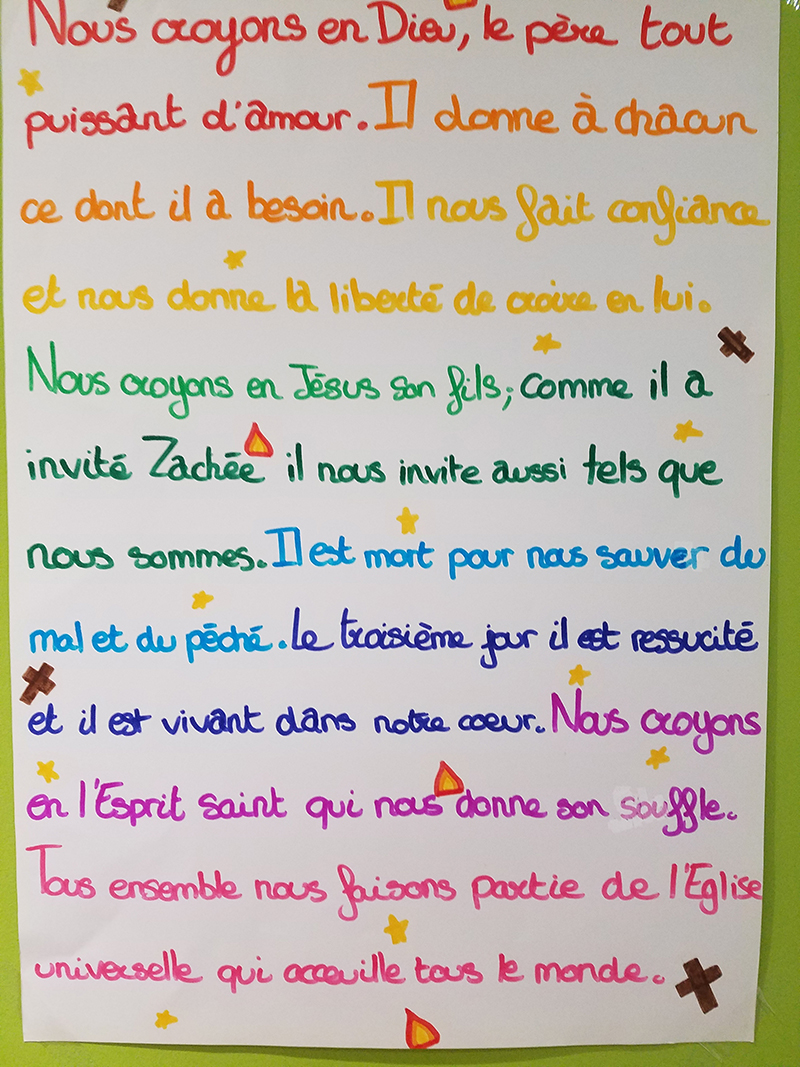 Nous croyons en Dieu, le père tout
puissant d'amour. Il donne à chacun
ce dont il a besoin. Il nous fait confiance
et nous donne la liberté de croire en lui.
Nous croyons en Jésus son fils; comme il a
invité Zachée il nous invite aussi tels que
nous sommes. Il est mort pour nous sauver du
mal et du péché. Le troisième jour il est ressucité
et il est vivant dans notre coeur. Nous croyons
en l'Esprit saint qui nous donne son souffle.
Tous ensemble nous faisons partie de l'Eglise
universelle qui acceuille tous le monde.